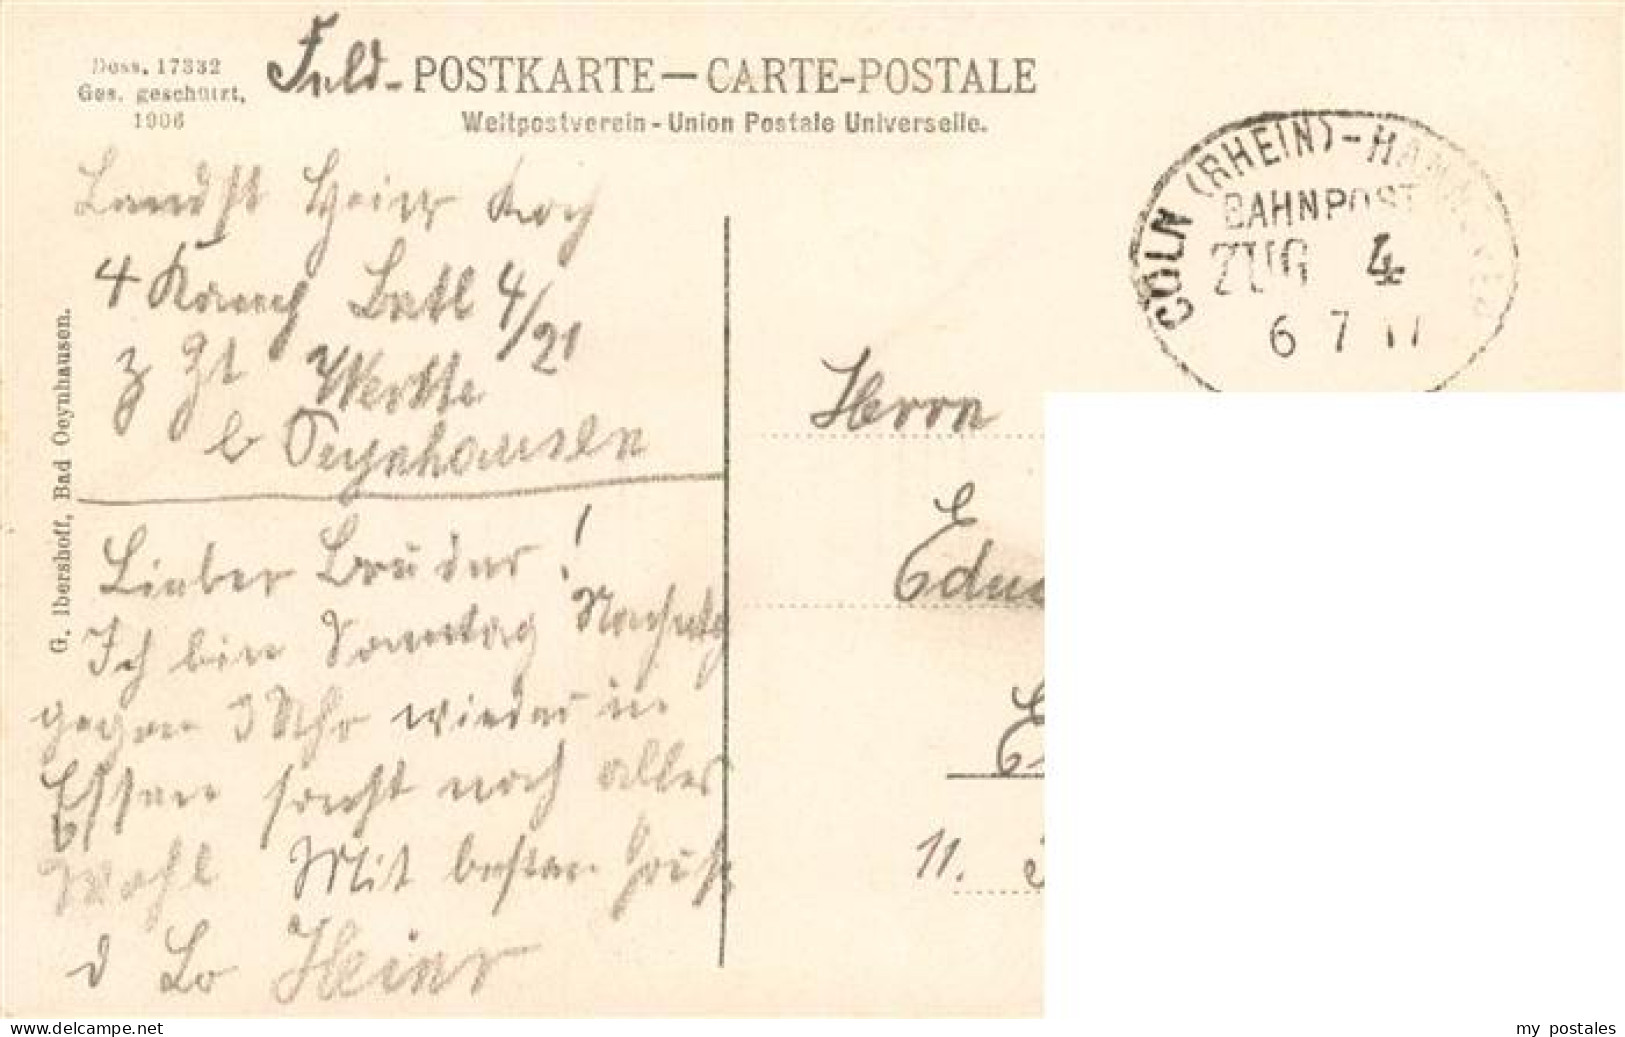 Dess. 17332
Ges. geschützt,
1906
Feld-POSTKARTE—CARTE-POSTALE
Weltpostverein - Union Postale Universelle.
CÖLN (RHEIN)-HANNOVER
BAHNPOST
ZUG 4
6 7 17
G. Ibershoff, Bad Oeynhausen.
Landst Heinr Koch
4 Komp Batl 4/21
z Zt Werste
b Oeynhausen
Lieber Bruder!
Ich bin Sonntag Nachmitg
gegen 3 Uhr wieder in
Essen sonst noch alles
Wohl Mit besten Gruß
d Br Heinr
Herrn
Edu
E
11.
my postales
www.delcampe.net